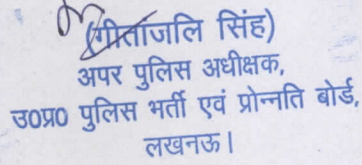 (गीतांजलि सिंह)
अपर पुलिस अधीक्षक,
उ०प्र० पुलिस भर्ती एवं प्रोन्नति बोर्ड,
लखनऊ।